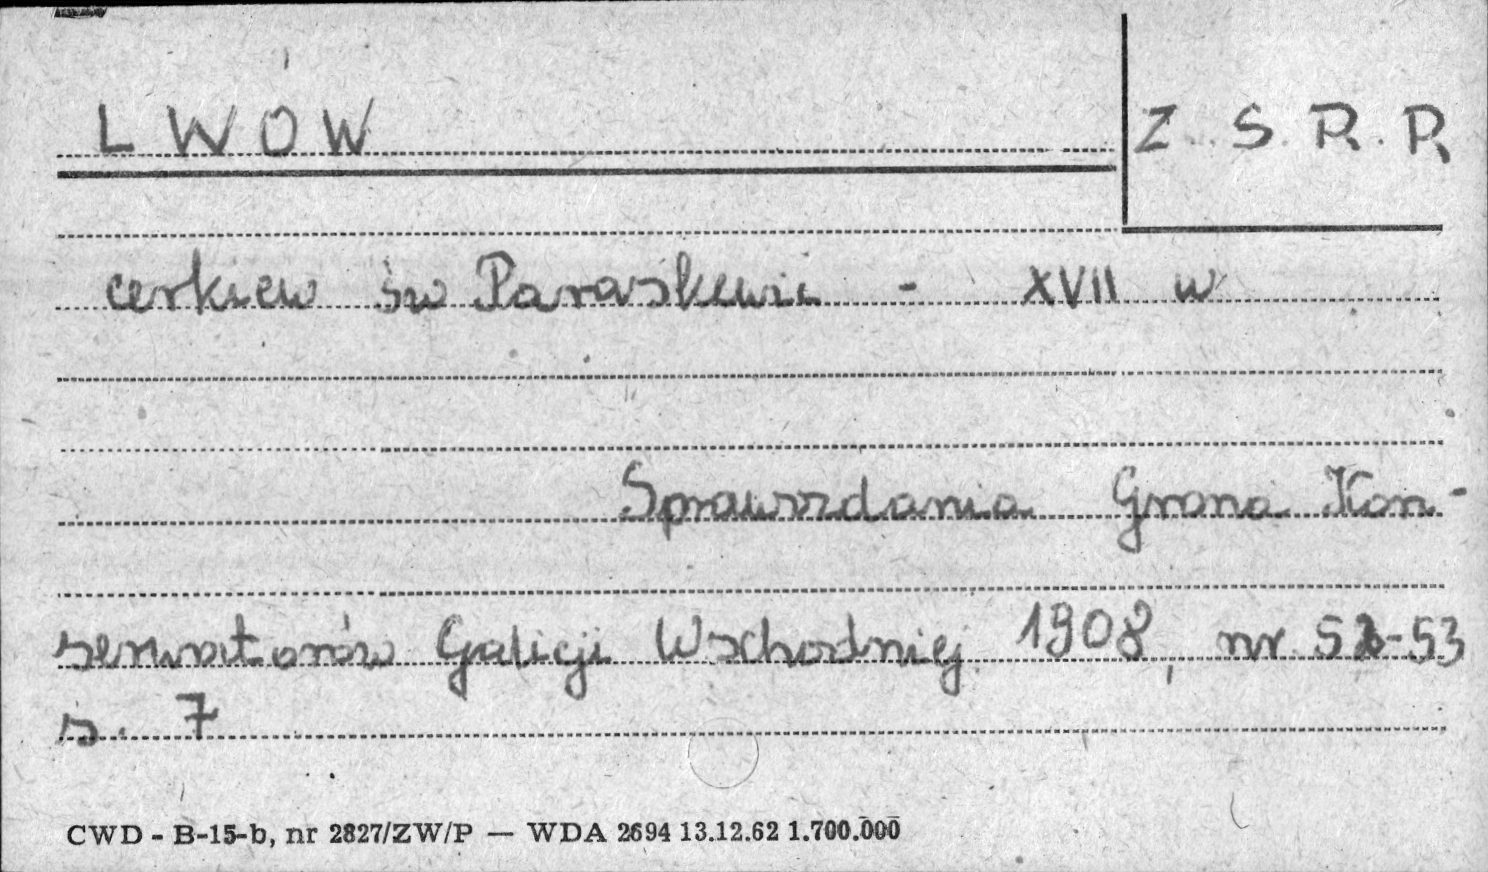 LWOW
Z.S.R.R
cerkiew św Paraskewii - XVII w
Sprawozdania Grona Kon-
serwatorów Galicji Wschodniej 1908, nr 52-53
s. 7
CWD - B-15-b, nr 2827/ZW/P — WDA 2694 13.12.62 1.700.000